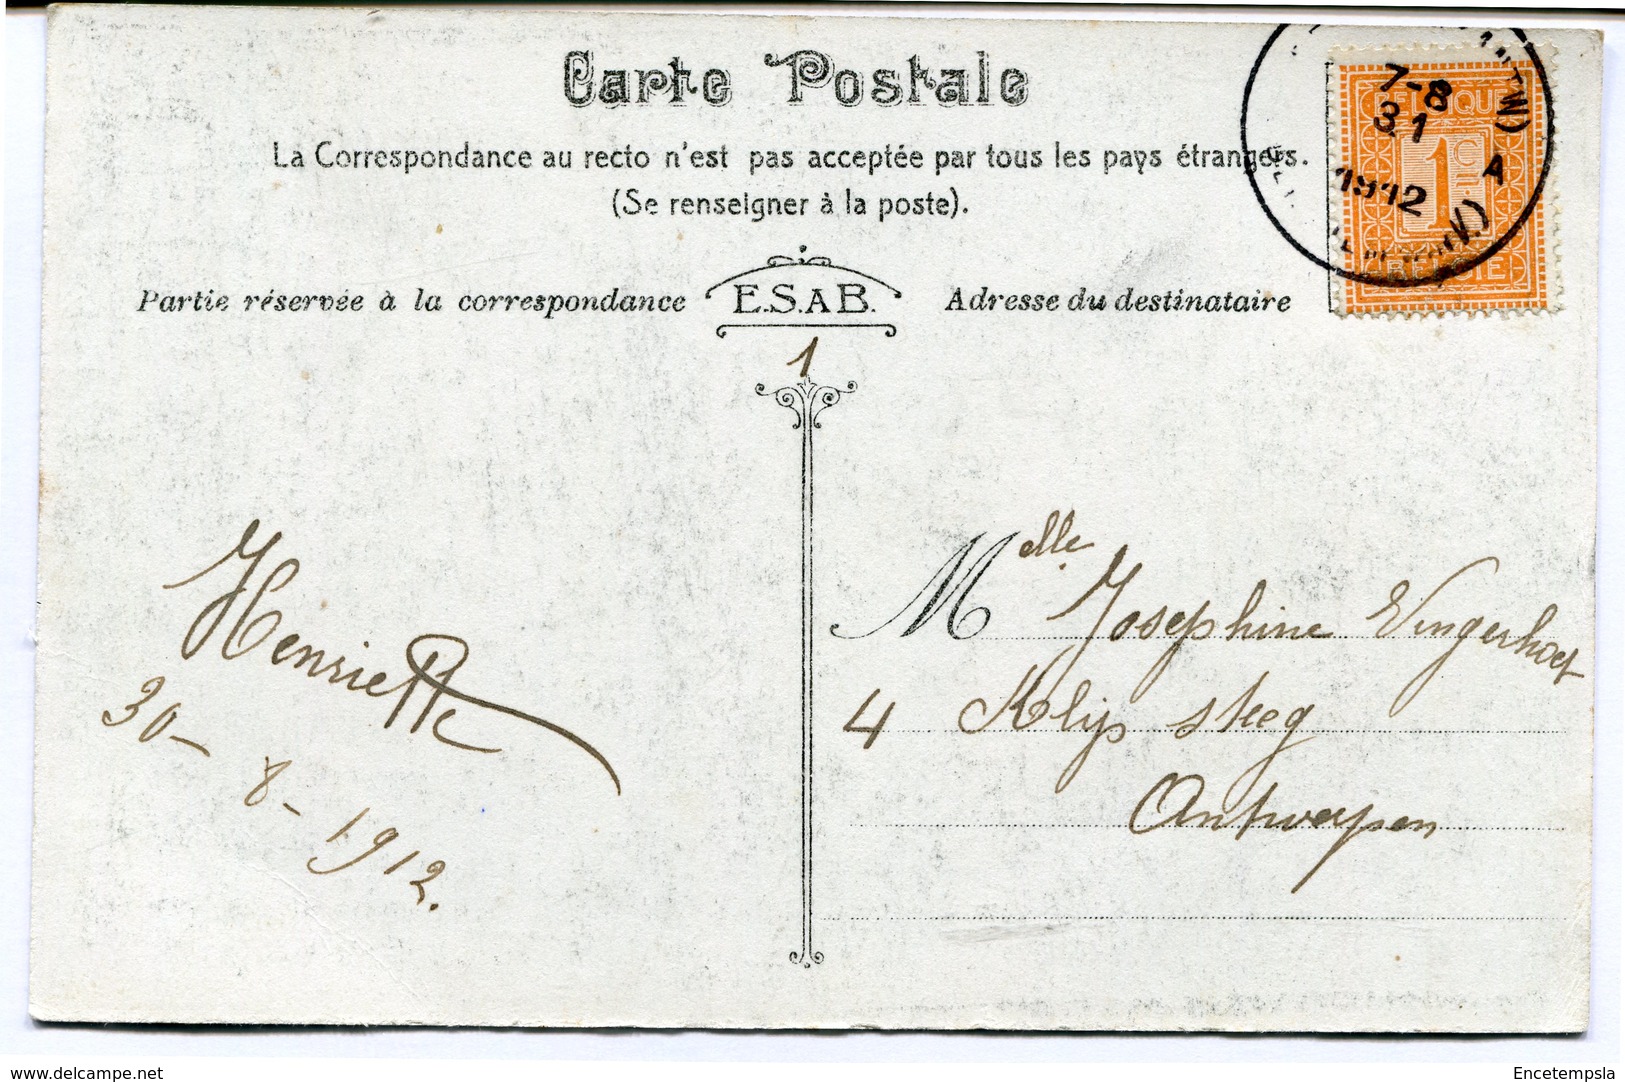 Carte Postale
La Correspondance au recto n'est pas acceptée par tous les pays étrangers.
(Se renseigner à la poste).
Partie réservée à la correspondance
E.S.A.B.
Adresse du destinataire
BELGIQUE
1c
BELGIË
7-8
31
1912
A
1
Henriette
30-8-1912.
Melle Josephine Vingerhoet
4 Klijp steeg
Antwerpen
delcampe.net
Encetempsla